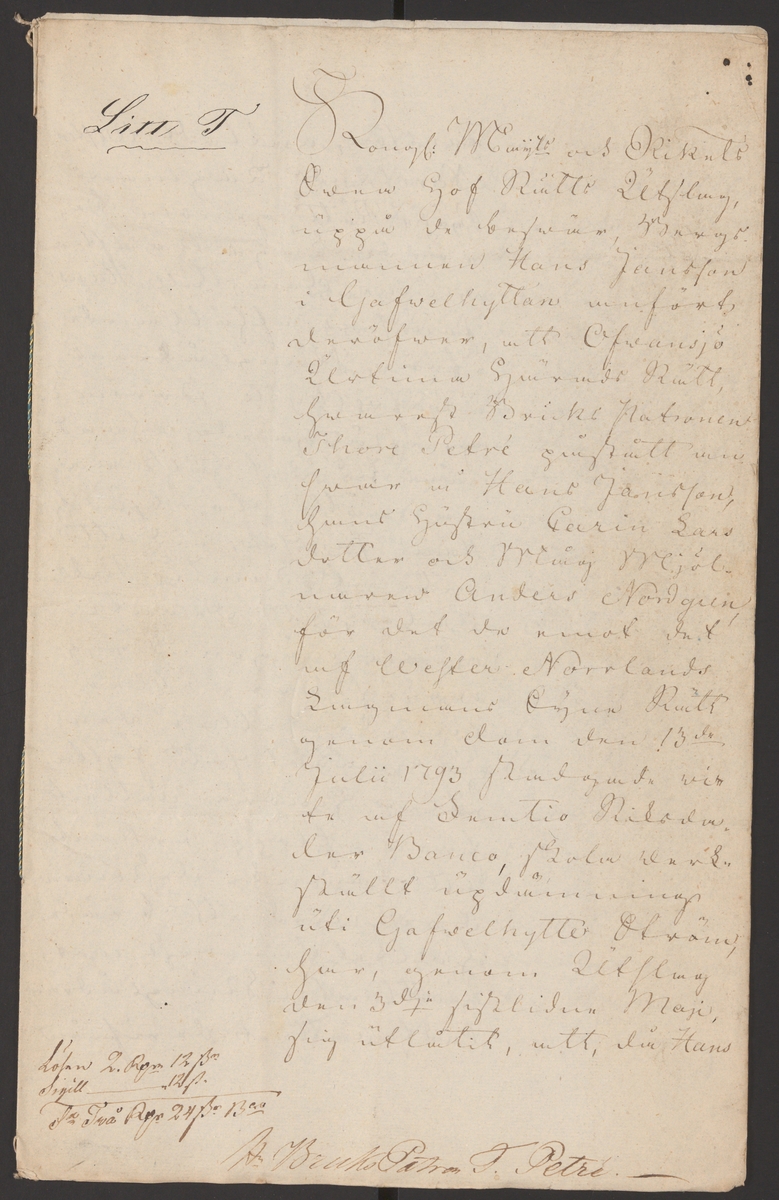 Litt T
Kongl: Maÿts och Rikets
Svea Hof Rätts Utslag,
uppå de besvär, Bergs
mannen Hans Jansson
i Gafvelhyttan anfört
deröfwer, att Ofvansjö
Urtima Härads Rätt,
hwarest Bruks Patronen
Thore Petré påstått an
svar å Hans Jansson,
hans Hustru Carin Lars
dotter och Måg Mjöl-
naren Anders Nordgren,
för det de emot det
af Wester Norrlands
Lagmans Tyne Rätt
genom dom den 13de
Julii 1793 stadgade vi-
te af Femtio Riksda-
ler Banco, skola verk-
ställt updämning
uti Gafvelhytte Ström,
har, genom Utslag
den 3dje sistlidne Maji,
sig utlåtit, att, då Hans
Lösen 2. Rdr 12 sk
Sigill 12 s.
Två Rdr 24 sk B:co
Hr Bruks Patron T. Petré.